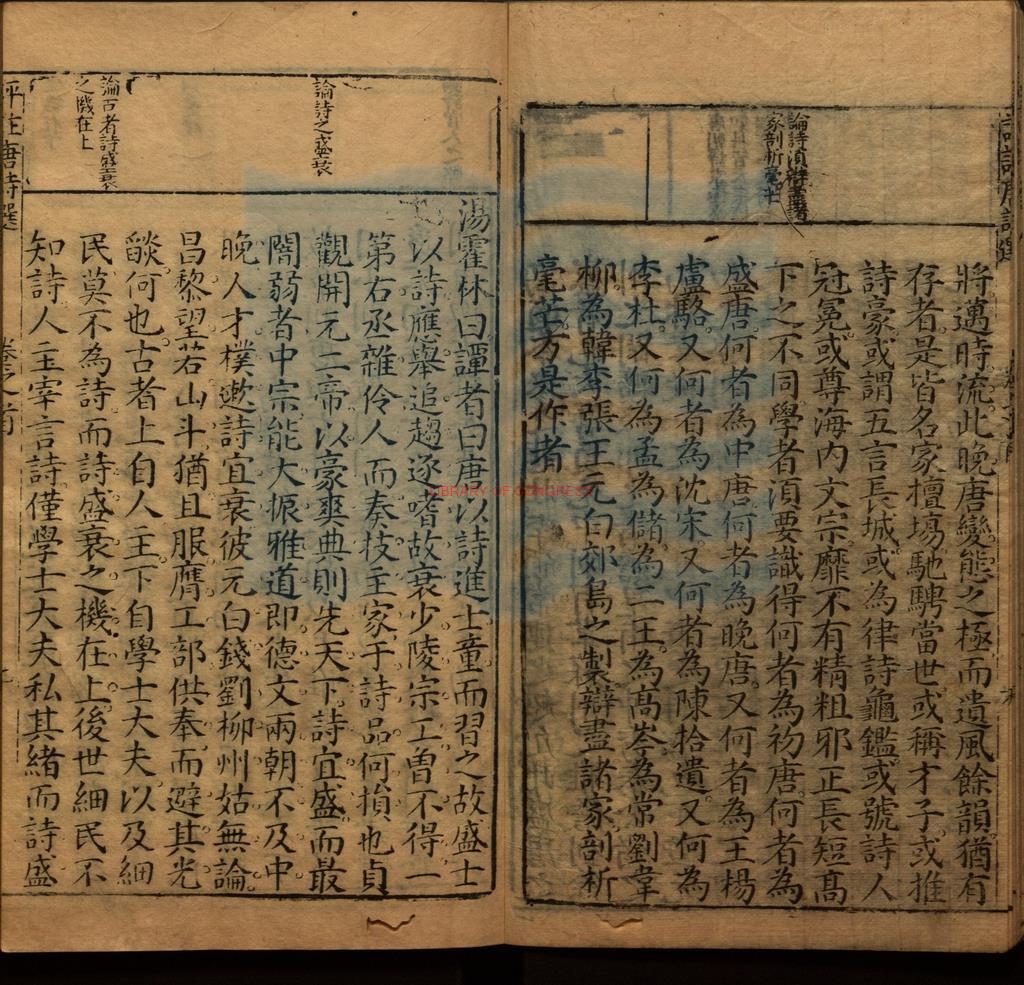 將邁時流此晚唐變態之極而遺風餘韻猶有
存者是皆名家擅場馳騁當世或稱才子或推
詩豪或謂五言長城或為律詩龜鑑或號詩人
冠冕或尊海內文宗靡不有精粗邪正長短高
下之不同學者須要識得何者為初唐何者為
盛唐何者為中唐何者為晚唐又何者為王楊
盧駱又何者為沈宋又何者為陳拾遺又何為
李杜又何為孟為儲為二王為高岑為常劉韋
柳為韓李張王元白郊島之製辯盡諸家剖析
毫芒方是作者
論詩須辯盡諸
家剖析毫芒
論詩之盛衰
湯霍林曰譚者曰唐以詩進士童而習之故盛士
以詩應舉追趨逐嗜故衰少陵宗工曾不得一
第右丞雜伶人而奏技主家于詩品何損也貞
觀開元二帝以豪爽典則先天下詩宜盛而最
闇弱者中宗能大振雅道即德文兩朝不及中
晚人才樸遬詩宜衰彼元白錢劉柳州姑無論
昌黎望若山斗猶且服膺工部供奉而避其光
燄何也古者上自人主下自學士大夫以及細
民莫不為詩而詩盛衰之機在上後世細民不
知詩人主宰言詩僅學士大夫私其緒而詩盛
論古者詩盛衰
之機在上
評註唐詩選
LIBRARY OF CONGRESS